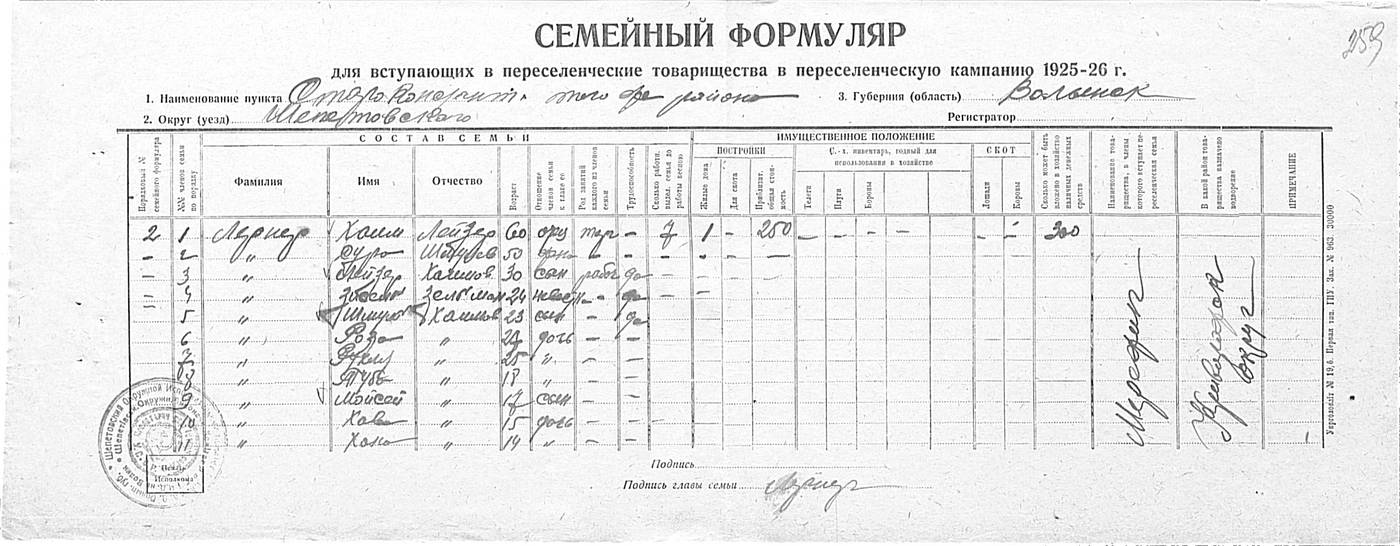 259
СЕМЕЙНЫЙ ФОРМУЛЯР
для вступающих в переселенческие товарищества в переселенческую кампанию 1925-26 г.
1. Наименование пункта района 3. Губерния (область) Волынск
2. Округ (уезд) Шепетовского Регистратор
СОСТАВ СЕМЬИ ИМУЩЕСТВЕННОЕ ПОЛОЖЕНИЕ
Порядковый № семейного формуляра №№ членов семьи по порядку Фамилия Имя Отчество Возраст Отношение членов семьи к главе ее Род занятий каждого из членов семьи Трудоспособность Сколько работн. выдел. семья по работы весною ПОСТРОЙКИ Жилые дома Для скота Приблизит. общая стоимость С.-х. инвентарь, годный для использования в хозяйстве Телеги Плуги Бороны СКОТ Лошади Коровы Сколько может быть вложено в хозяйство наличных денежных средств Наименование товарищества, в члены которого вступает переселенческая семья В какой район товарищества назначено водворение ПРИМЕЧАНИЕ
2 1 Лернер Хаим Лейзер 60 отец торг - 7 1 - 250 - - - - - 300
- 2 " Сура 50 жена - -
- 3 " Лейзер Хаимов 30 сын рабч да - -
- 4 " Зельман 24 невест - да - -
5 " Шмуль Хаимов 23 сын - да
6 " Роза " дочь -
7 " " 25 " -
8 " " 18 " -
9 " Мойсей " 17 сын -
10 " Хава " 15 дочь -
11 " Хана " 14 " -
округ
Подпись
Подпись главы семьи Лернер
Шепетовский Окружной
Укрголовліт № 19,6. Первая тип. ГПУ. Зак. № 963 30000